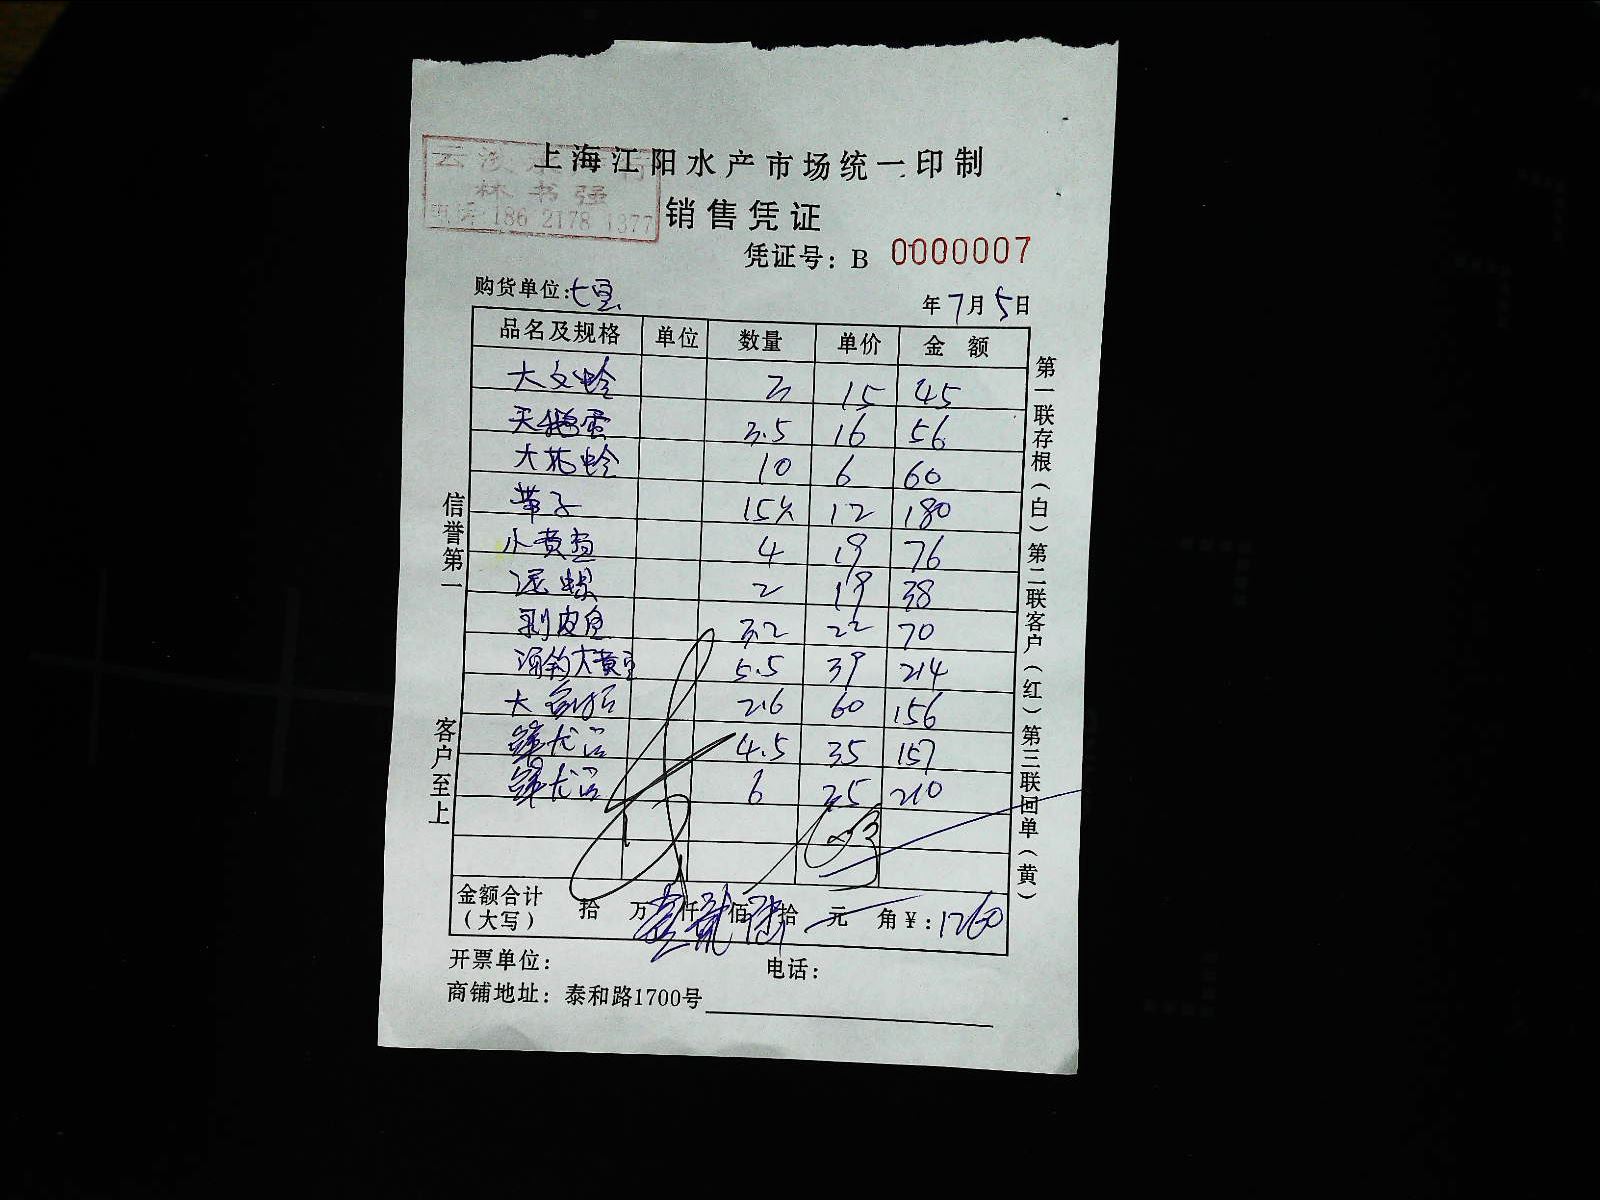 上海江阳水产市场统一印制
林书强
186 2178 1377
销售凭证
凭证号：B 0000007
购货单位：七宝 年7月5日
品名及规格 单位 数量 单价 金 额
大文蛤 3 15 45
天鹅蛋 3.5 16 56
大花蛤 10 6 60
带子 15 12 180
小黄鱼 4 19 76
泥螺 2 19 38
剥皮鱼 3.2 22 70
大黄鱼 5.5 39 214
大 2.6 60 156
4.5 35 157
6 35 210
金额合计
（大写） 拾 万壹仟贰佰陆拾 元 角￥：1260
开票单位： 电话：
商铺地址：泰和路1700号
信誉第一 客户至上
第一联存根（白）第二联客户（红）第三联回单（黄）